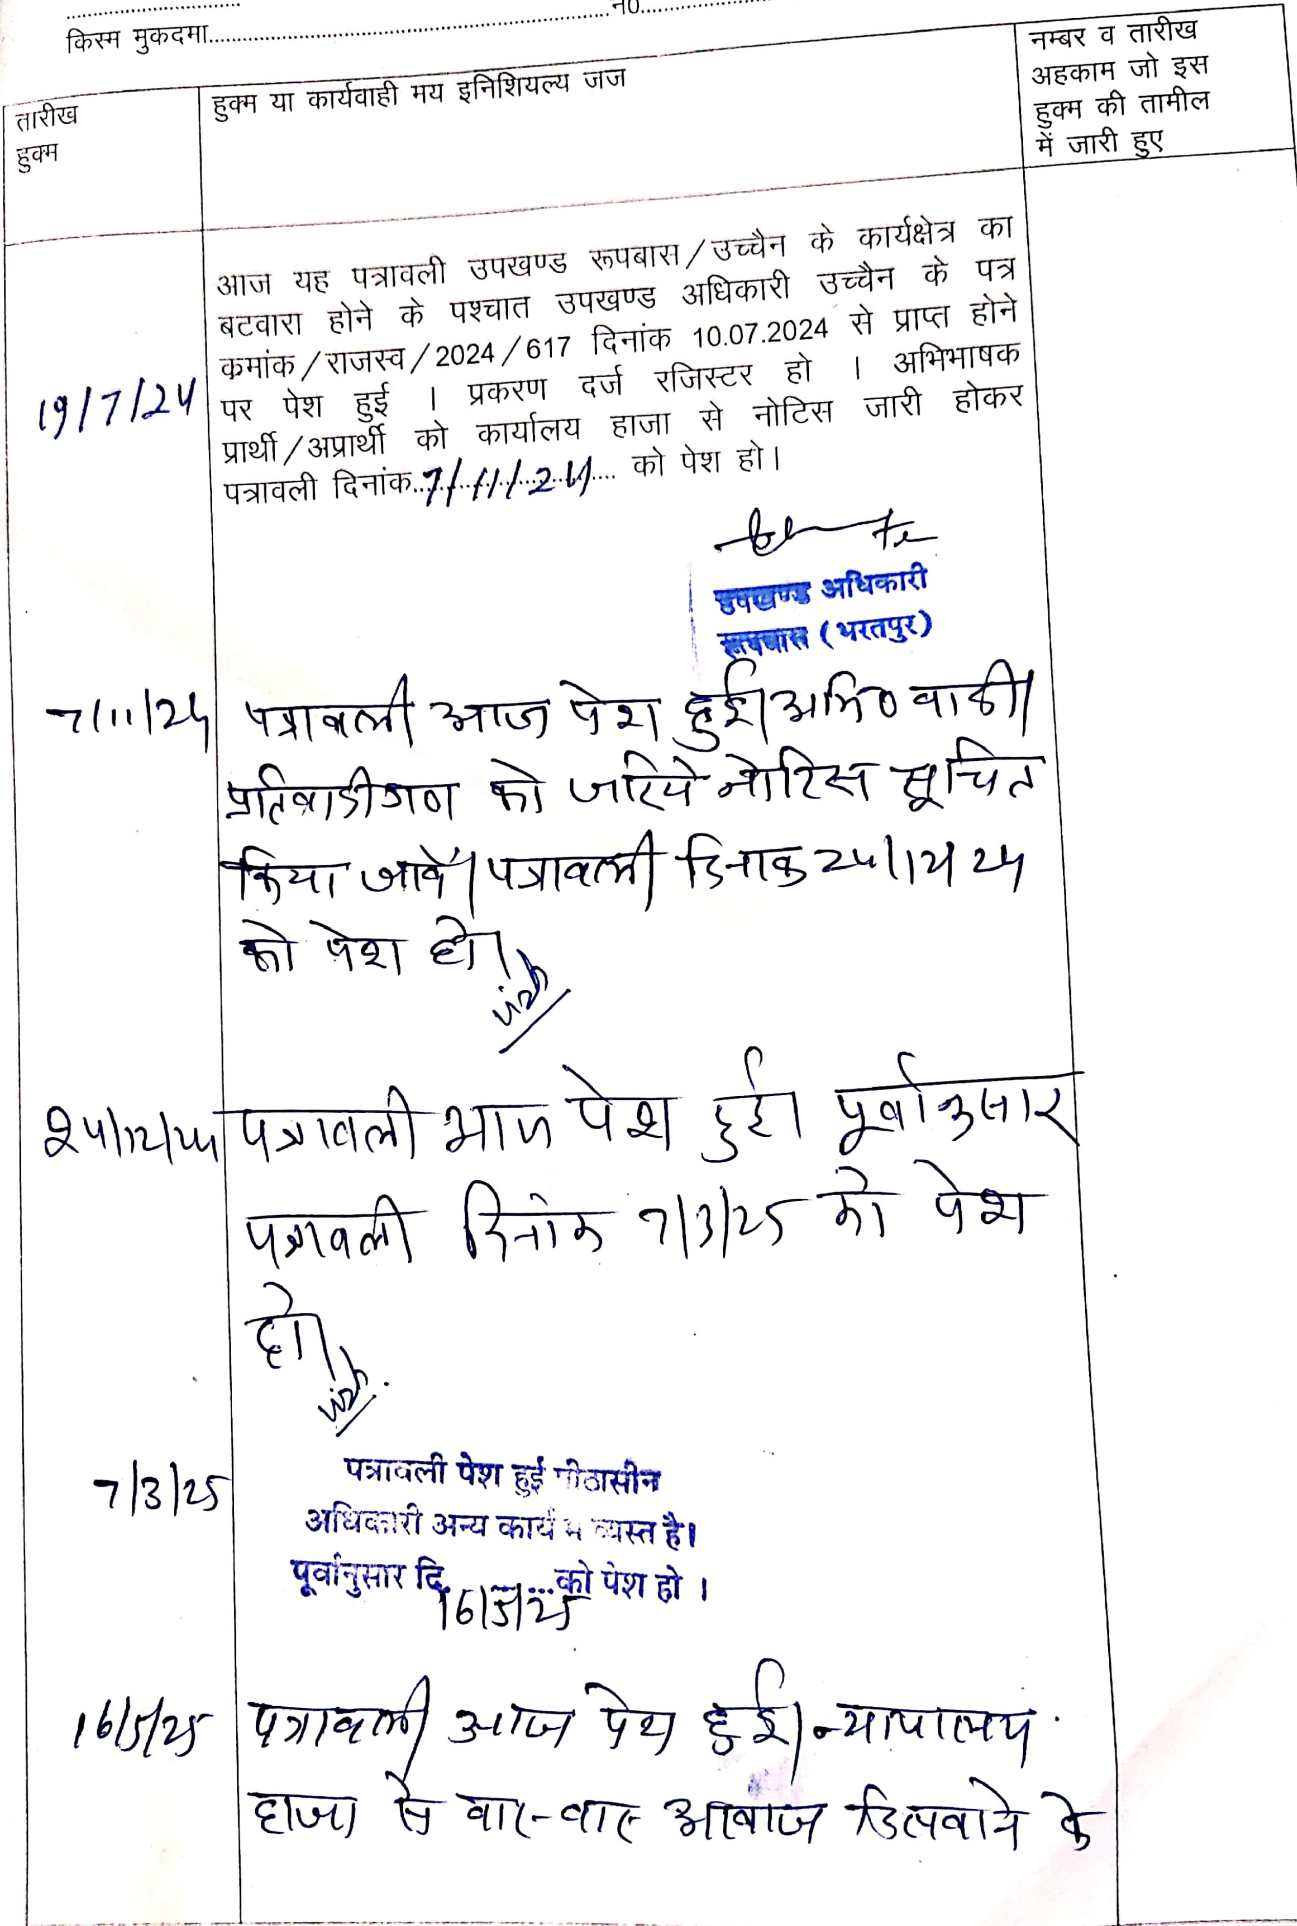 नं0
किस्म मुकदमा
तारीख
हुक्म
हुक्म या कार्यवाही मय इनिशियल्य जज
नम्बर व तारीख
अहकाम जो इस
हुक्म की तामील
में जारी हुए
आज यह पत्रावली उपखण्ड रूपबास/उच्चैन के कार्यक्षेत्र का
बटवारा होने के पश्चात उपखण्ड अधिकारी उच्चैन के पत्र
कमांक/राजस्व/2024/617 दिनांक 10.07.2024 से प्राप्त होने
19/7/24 पर पेश हुई । प्रकरण दर्ज रजिस्टर हो । अभिभाषक
प्रार्थी/अप्रार्थी को कार्यालय हाजा से नोटिस जारी होकर
पत्रावली दिनांक..7/11/24.... को पेश हो।
उपखण्ड अधिकारी
रूपबास (भरतपुर)
7/11/24 पत्रावली आज पेश हुई। अभि0 वादी/
प्रतिवादीगण को जरिये नोटिस सूचित
किया जावें। पत्रावली दिनांक 24/12/24
को पेश हो।
24/12/24 पत्रावली आज पेश हुई। पूर्वानुसार
पत्रावली दिनांक 7/3/25 को पेश
हो।
7/3/25 पत्रावली पेश हुई पीठासीन
अधिकारी अन्य कार्य में व्यस्त है।
पूर्वानुसार दि. 16/5/25 ...को पेश हो ।
16/5/25 पत्रावली आज पेश हुई। न्यायालय
हाजा से बार-बार आवाज दिलवाने के